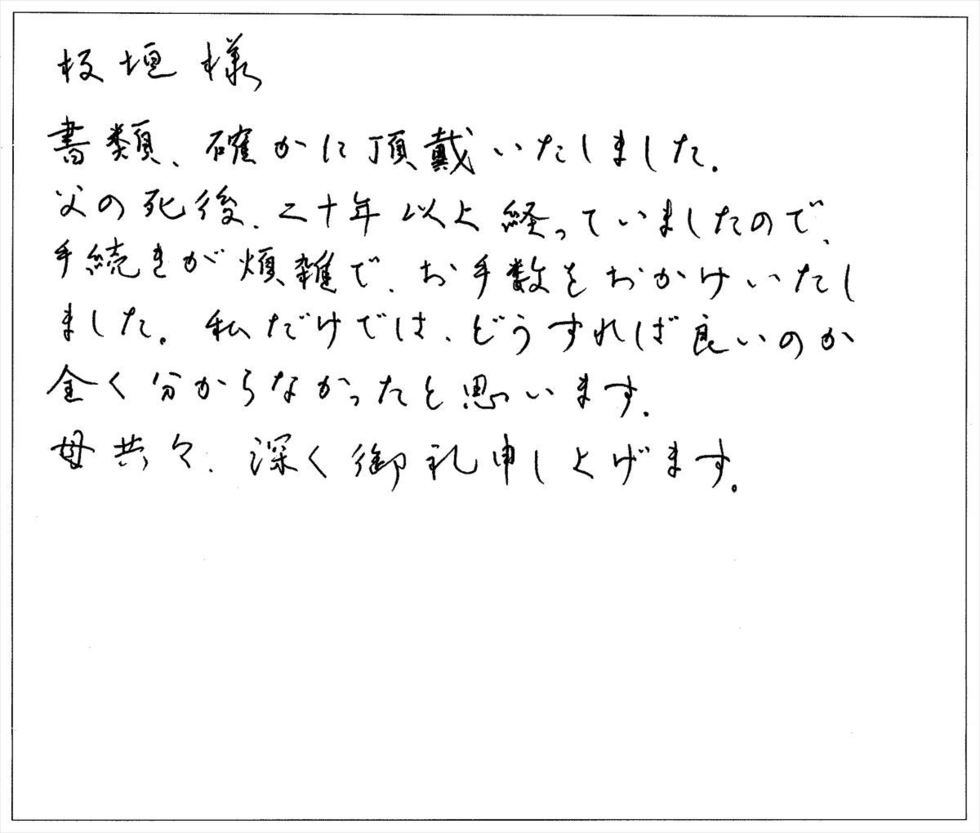 板垣様
書類、確かに頂戴いたしました。
父の死後、二十年以上経っていましたので、
手続きが煩雑で、お手数をおかけいたし
ました。私だけでは、どうすれば良いのか
全く分からなかったと思います。
母共々、深く御礼申し上げます。